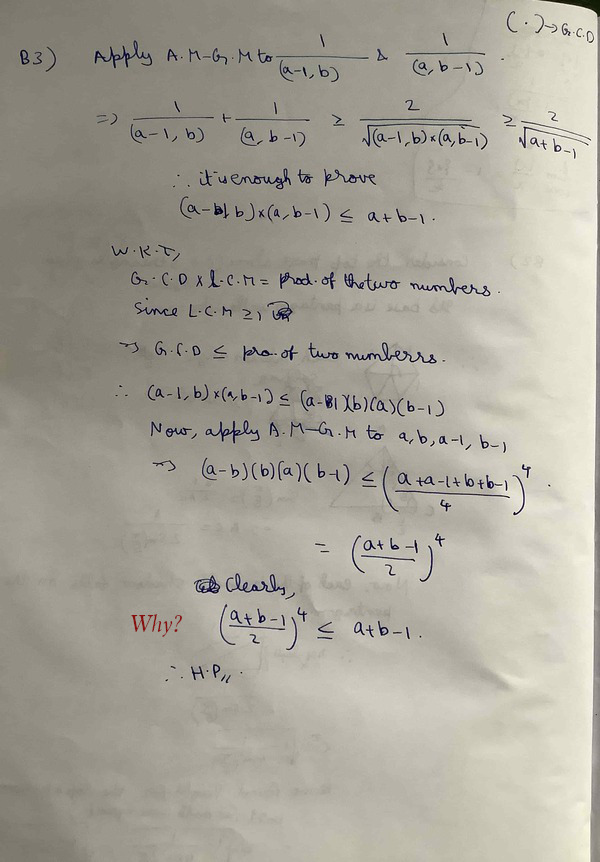 (.)→G.C.D
B3) Apply A.M-G.M to 1/(a-1, b) & 1/(a, b-1).
=> 1/(a-1, b) + 1/(a, b-1) ≥ 2/√((a-1, b)×(a, b-1)) ≥ 2/√(a+b-1)
∴ it is enough to prove
(a-1, b)×(a, b-1) ≤ a+b-1.
W.K.T,
G.C.D × L.C.M = prod. of the two numbers.
Since L.C.M ≥ 1,
⇒ G.C.D ≤ pro. of two numberrs.
∴ (a-1, b)×(a, b-1) ≤ (a-1)(b)(a)(b-1)
Now, apply A.M-G.M to a, b, a-1, b-1
⇒ (a-b)(b)(a)(b-1) ≤ ((a+a-1+b+b-1)/4)^4.
= ((a+b-1)/2)^4
Clearly,
Why? ((a+b-1)/2)^4 ≤ a+b-1.
∴ H.P//.